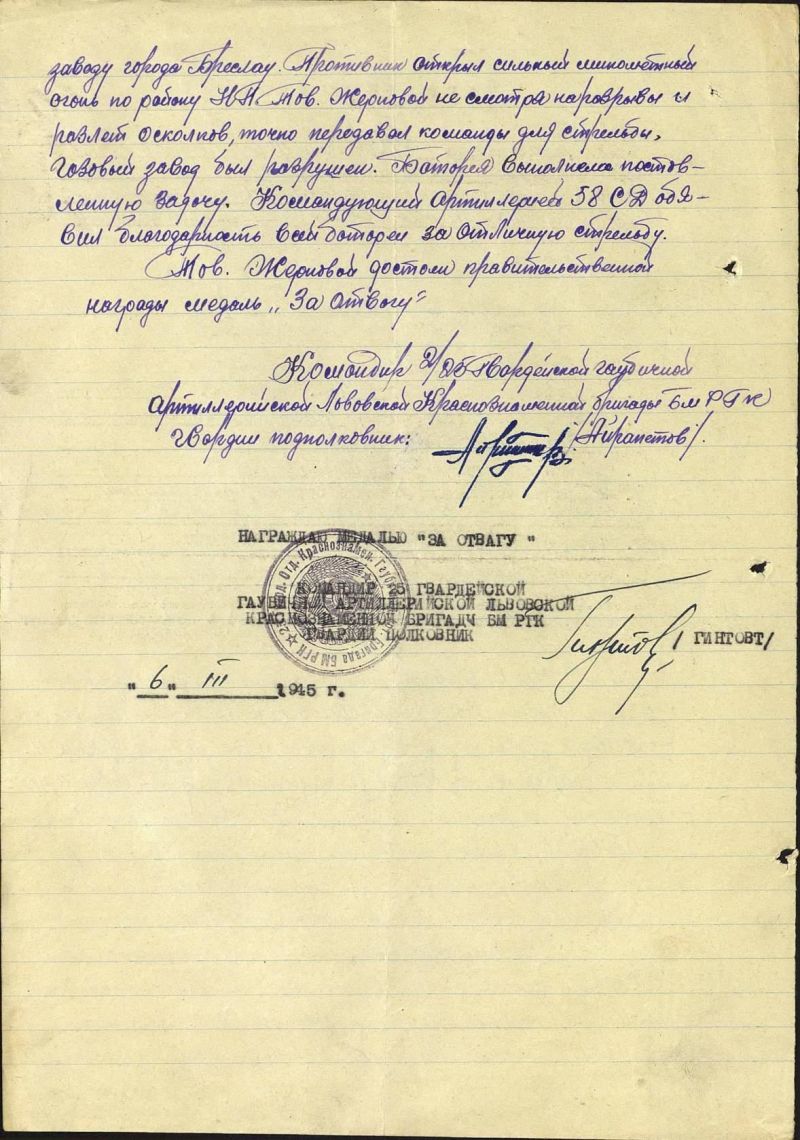 заводу города Бреслау. Противник открыл сильный минометный
огонь по району НП. Тов. Жерновой не смотря на разрывы и
разлет осколков, точно передавал команды для стрельбы.
Газовый завод был разрушен. Батарея выполнила постав-
ленную задачу. Командующий Артиллерией 58 СД объя-
вил благодарность всей батареи за отличную стрельбу.
Тов. Жерновой достоин правительственной
награды медаль „За Отвагу"
Командир 2/25 Гвардейской гаубичной
Артиллерийской Львовской Краснознаменной бригады БМ РГК
Гвардии подполковник: /Айрапетов/.
НАГРАЖДАЮ МЕДАЛЬЮ "ЗА ОТВАГУ"
КОМАНДИР 25 ГВАРДЕЙСКОЙ
ГАУБИЧНОЙ АРТИЛЛЕРИЙСКОЙ ЛЬВОВСКОЙ
КРАСНОЗНАМЕННОЙ БРИГАДЧ БМ РГК
ГВАРДИИ ПОЛКОВНИК /ГИНТОВТ/
"6" III 1945 г.
Отд. Краснознамен. Гауб. Бригада БМ РГК